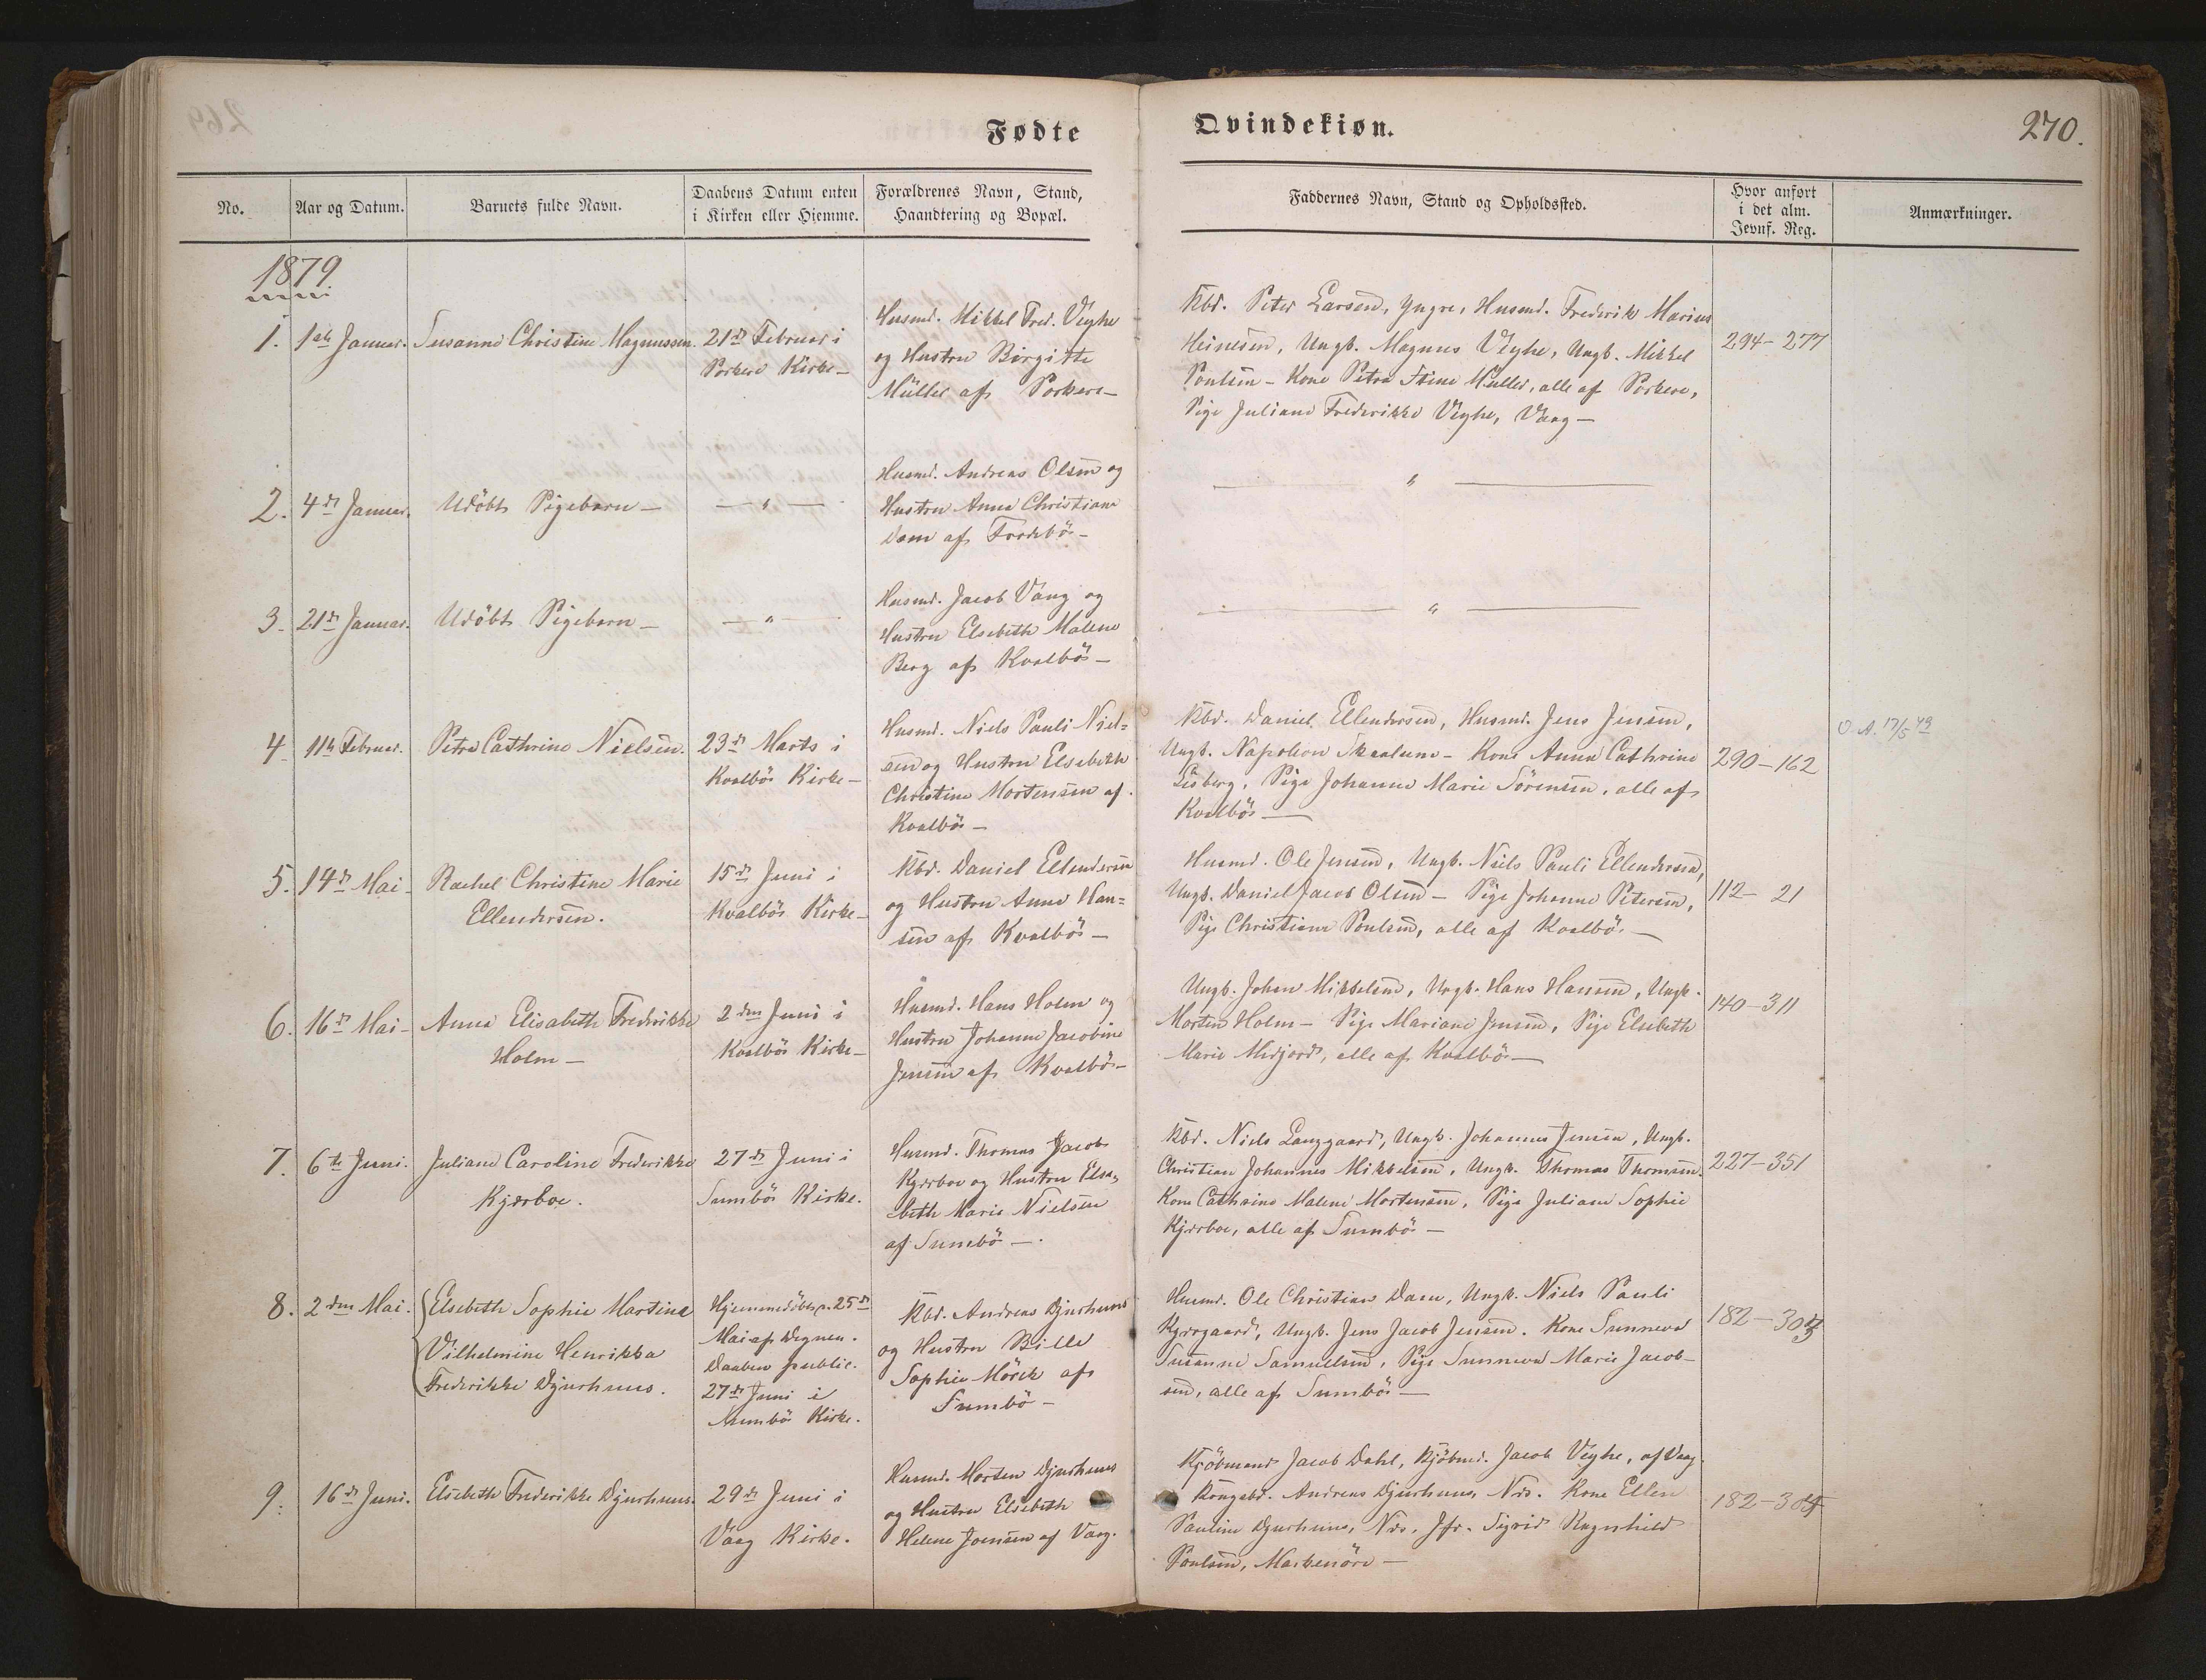 Fødte
Qvindekiøn.
270.
No.
Aar og Datum.
Barnets fulde Navn.
Daabens Datum enten
i Kirken eller Hjemme.
Forældrenes Navn, Stand,
Haandtering og Bopæl.
Faddernes Navn, Stand og Opholdssted.
Hvor anført
i det alm.
Jevnf. Reg.
Anmærkninger.
1879
1.
1ste Januar.
Susanne Christine Magnussen.
21de Februar i
Porkere Kirke-
Husmd. Mikkel Fred. Veyhe
og Hustru Birgitte
Müller af Porkere-
Kbd. Peter Larsen, yngre, Husmd. Frederik Marius
Heinesen, Ungk. Magnus Veyhe, Ungk. Mikkel
Poulsen - Kone Petra Stine Müller, alle af Porkere,
Pige Juliane Frederikke Veyhe, Vaag-
294-277
2.
4de Januar.
Udöbt Pigebarn-
— " —
Husmd. Andreas Olsen og
Hustru Anna Christiane
Dam af Frodebö-
— " —
3.
21de Januar.
Udöbt Pigebarn-
— " —
Husmd. Jacob Vang og
Hustru Elsebeth Malene
Berg af Kvalbö-
— " —
4
11te Februar.
Petra Cathrine Nielsen.
23de Marts i
Kvalbö Kirke-
Husmd. Niels Pauli Niel=
sen og Hustru Elsebeth
Christine Mortensen af
Kvalbö-
Kbd. Daniel Ellendersen, Husmd. Jens Jensen,
Ungk. Napoleon Skaalum- Kone Anna Cathrine
Lisberg, Pige Johanne Marie Sörensen, alle af
Kvalbö-
290-162
O. A. 17/5 43
5.
14de Mai-
Rachel Christine Marie
Ellendersen.
15de Juni i
Kvalbö Kirke-
Kbd. Daniel Ellendersen
og Hustru Anne Han=
sen af Kvalbö-
Husmd. Ole Jensen, Ungk. Niels Pauli Ellendersen,
Ungk. Daniel Jacob Olsen- Pige Johanne Petersen,
Pige Christiane Poulsen, alle af Kvalbö.-
112- 21
6.
16de Mai-
Anna Elisabeth Frederikke
Holm-
2den Juni i
Kvalbö Kirke-
Husmd. Hans Holm og
Hustru Johanne Jacobine
Jensen af Kvalbö-
Ungk. Johan Mikkelsen, Ungk. Hans Hansen, Ungk.
Morten Holm- Pige Mariane Jensen, Pige Elsebeth
Marie Midjord, alle af Kvalbö-
140-311
7.
6te Juni.
Juliane Caroline Frederikke
Kjærboe.
27de Juni i
Sumbö Kirke.
Husmd. Thomas Jacob
Kjærboe og Hustru Else=
beth Marie Nielsen
af Sumbö-.
Kbd. Niels Langgaard, Ungk. Johannes Jensen, Ungk.
Christian Johannes Mikkelsen, Ungk. Thomas Thomsen.
Kone Cathrine Malene Mortensen, Pige Juliane Sophie
Kjærboe, alle af Sumbö-
227-351
8.
2den Mai.
Elsebeth Sophie Martine
Vilhelmine Henrikka
Frederikke Djurhuus.
Hjemmedöbt p. 25de
Mai af Degnen.
Daaben public.
27de Juni i
Sumbö Kirke.
Kbd. Andreas Djurhuus
og Hustru Bille
Sophie Mörck af
Sumbö-
Husmd. Ole Christian Dam, Ungk. Niels Pauli
Kjærgaard, Ungk. Jens Jacob Jensen. Kone Sunneva
Susanne Samuelsen, Pige Sunneva Marie Jacob-
sen, alle af Sumbö-
182-303
9.
16de Juni.
Elsebeth Frederikke Djurhuus.
29de Juni i
Vaag Kirke.
Husmd. Morten Djurhuus
og Hustru Elsebeth
Helene Joensen af Vaag.
Kjöbmand Jacob Dahl, Kjöbmd. Jacob Veyhe, af Vaag.
Kongsbd. Andreas Djurhuus, Næs. Kone Ellen
Pauline Djurhuus, Næs. Jfr. Sigrid Ragnhild
Poulsen, Markenöre-